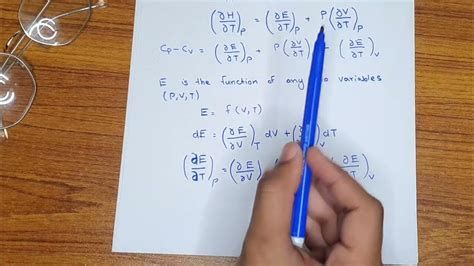 (∂H/∂T)_P = (∂E/∂T)_P + P(∂V/∂T)_P
C_P - C_V = (∂E/∂T)_P + P(∂V/∂T) (∂E/∂T)_V
E is the function of any variables
(P,V,T)
E = f(V,T)
dE = (∂E/∂V)_T dV + (∂ dT
(∂E/∂T)_P = (∂E/∂V) ∂E/∂T)_V